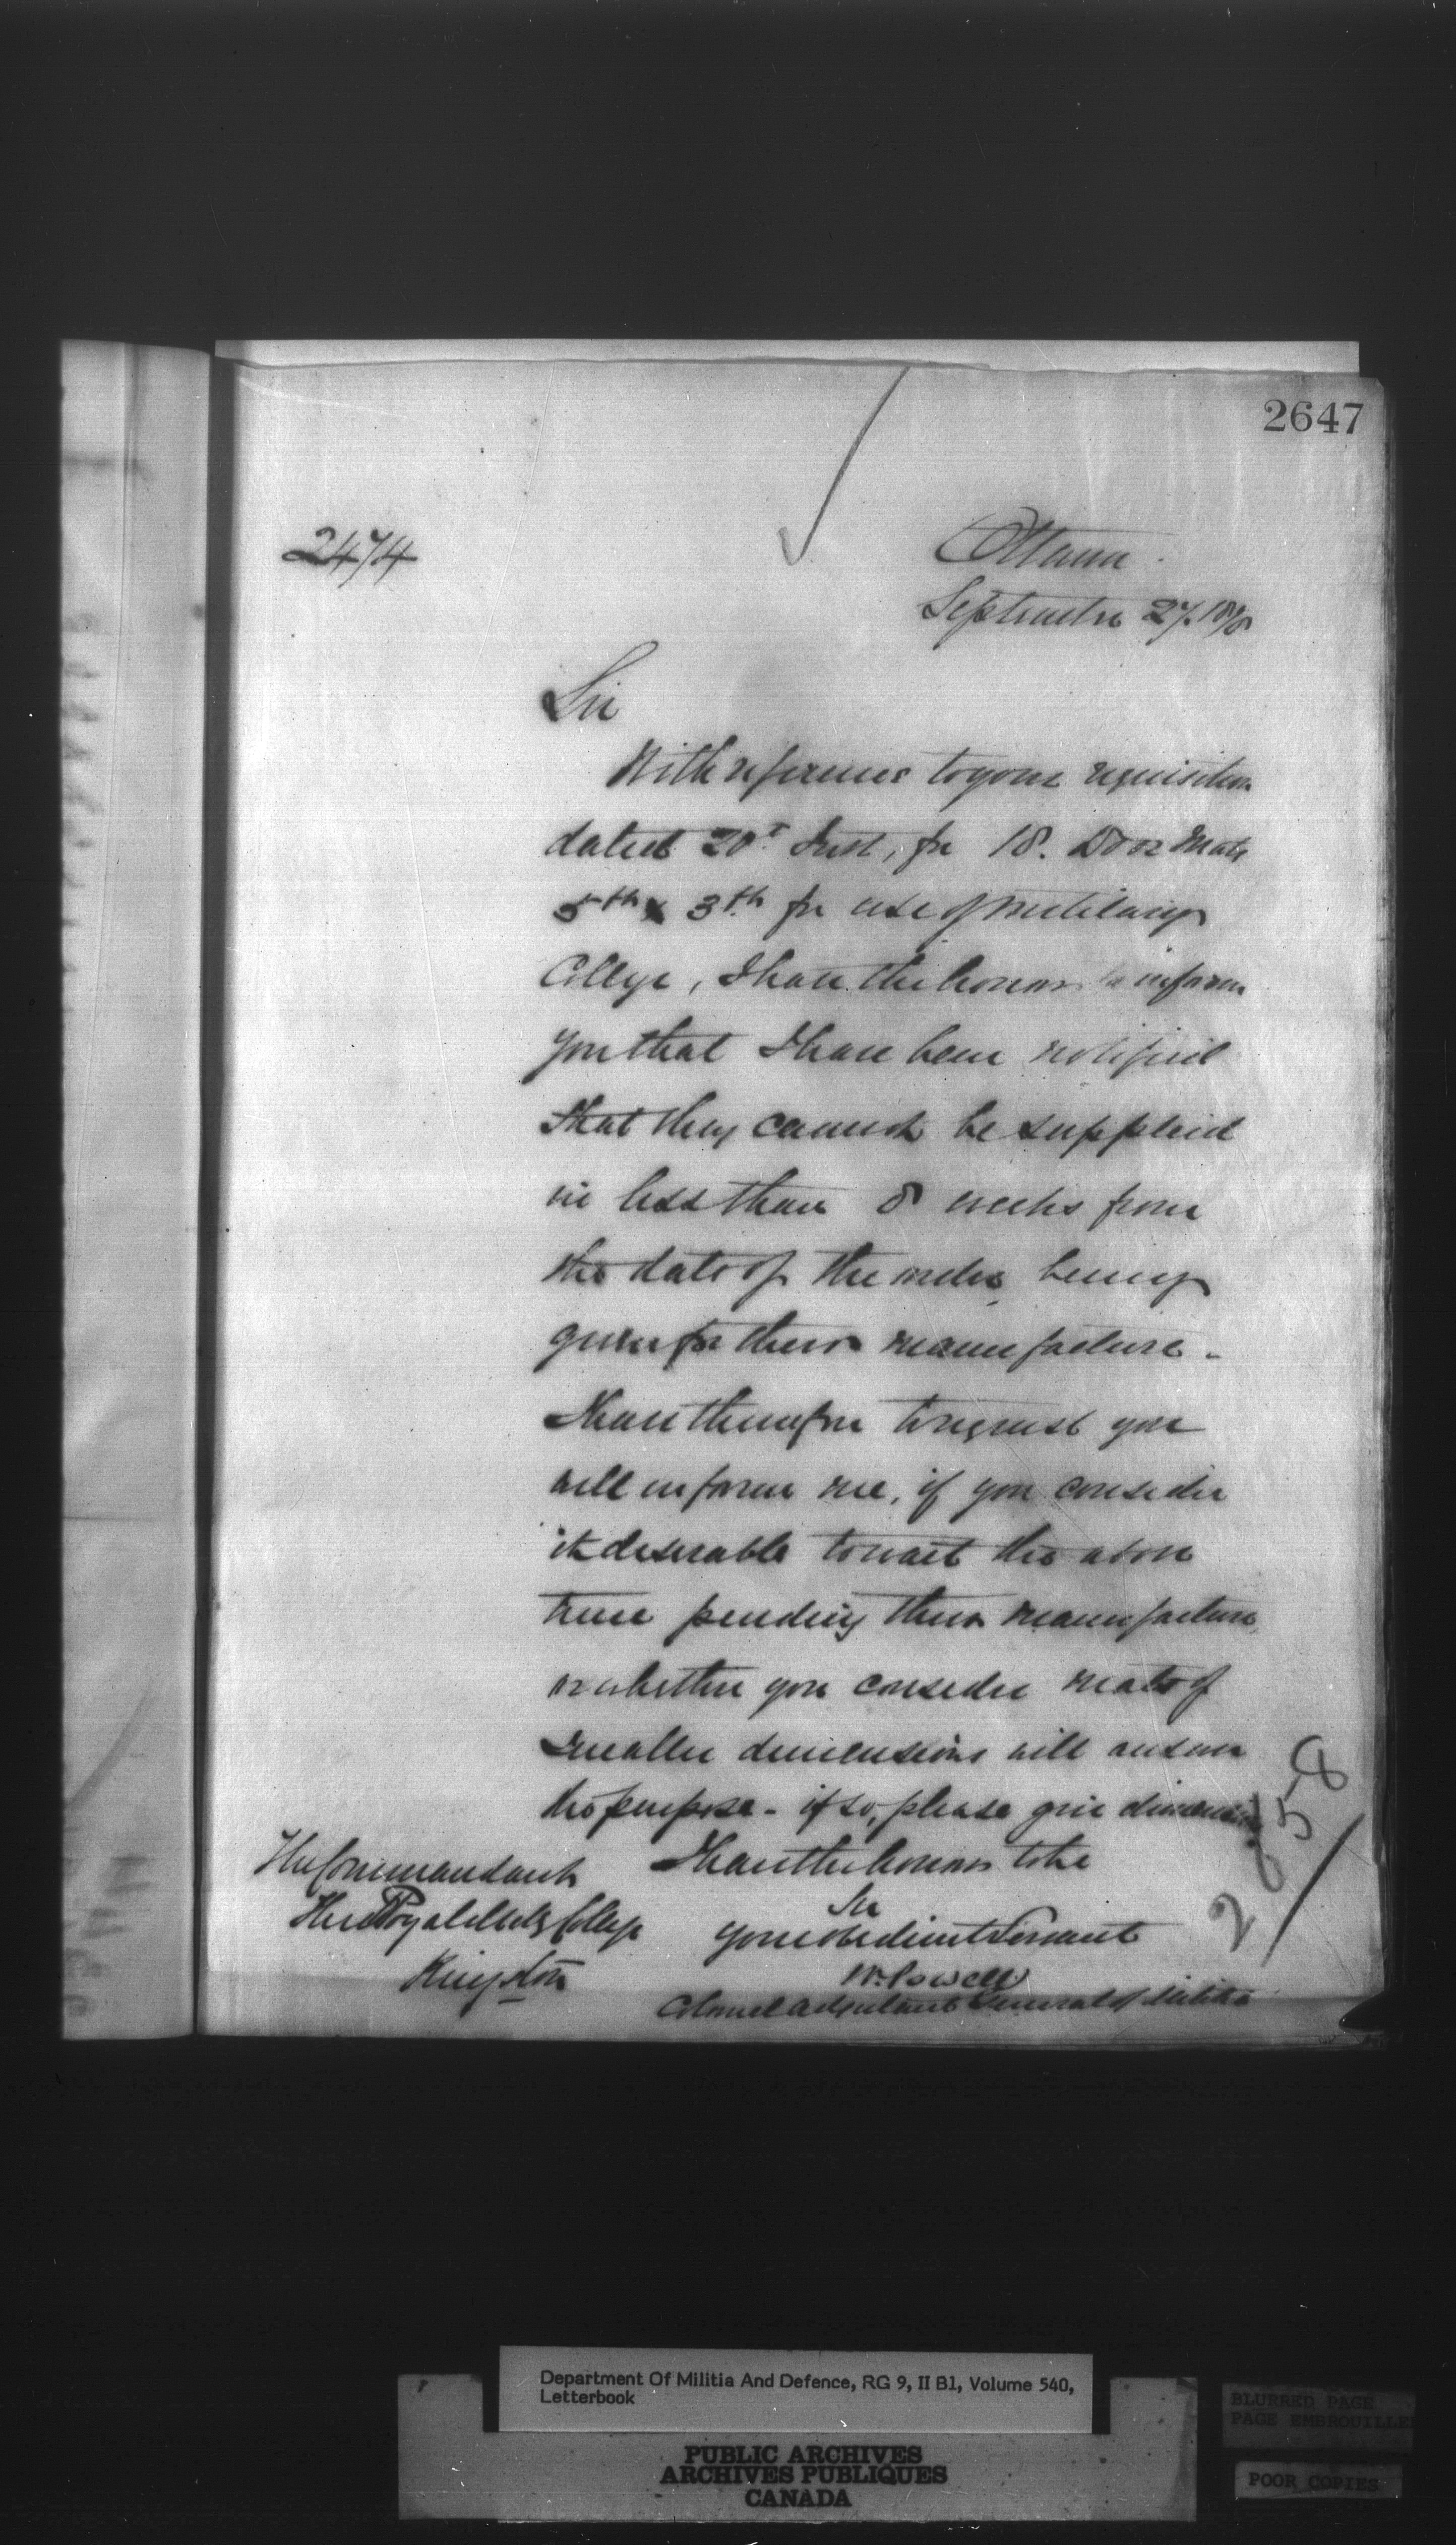 2647
2474
Ottawa
September 27. 18
Sir
With reference to your requisition
dated 20t Inst, for 18. Door Mats
5th x 3th for use of Military
College, I have the honor to inform
you that I have been notified
that they cannot be supplied
in less than 8 weeks from
the date of the order being
given for their manufacture.
I have therefore to request you
will inform me, if you consider
it desirable to wait the above
time pending their manufacture,
or whether you consider mats of
smaller dimensions will answer
the purpose - if so, please give dimensions
I have the honor to be
Sir
your obedient Servant
W. Powell
Colonel Adjutant General of Militia
The Commandant
The Royal Mily College
Kingston
Department Of Militia And Defence, RG 9, II B1, Volume 540,
Letterbook
PUBLIC ARCHIVES
ARCHIVES PUBLIQUES
CANADA
BLURRED PAGE
PAGE EMBROUILLEE
POOR COPIES